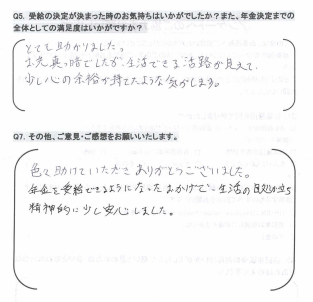 Q5. 受給の決定が決まった時のお気持ちはいかがでしたか？また、年金決定までの
全体としての満足度はいかがですか？
とても助かりました。
お先真っ暗でしたが、生活できる活路が見えて、
少し心の余裕が持てたような気がします。
Q7. その他、ご意見・ご感想をお願いいたします。
色々助けていただきて ありがとうございました。
年金を受給できるようになったおかげで、生活の目処が立ち
精神的に少し安心しました。